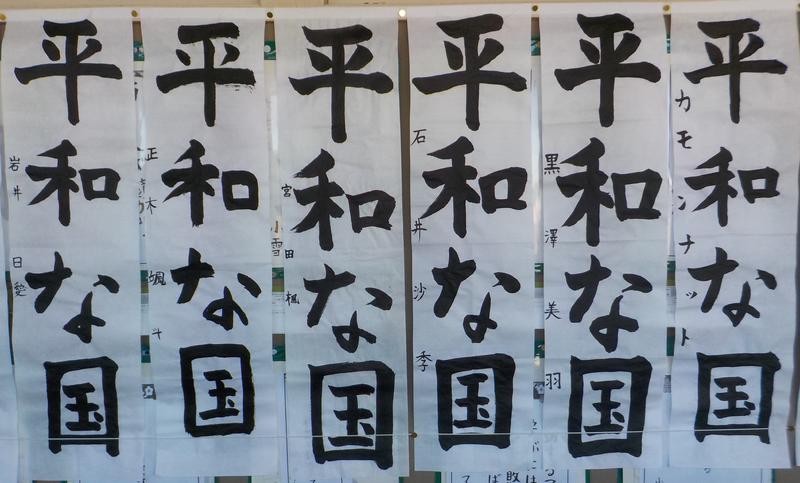 平和なå›½
カモンナット
平和な国
黒澤美羽
平和な国
石井沙季
平和な国
宮田楓
平和な国
正木颯斗
平和な国
岩井日愛